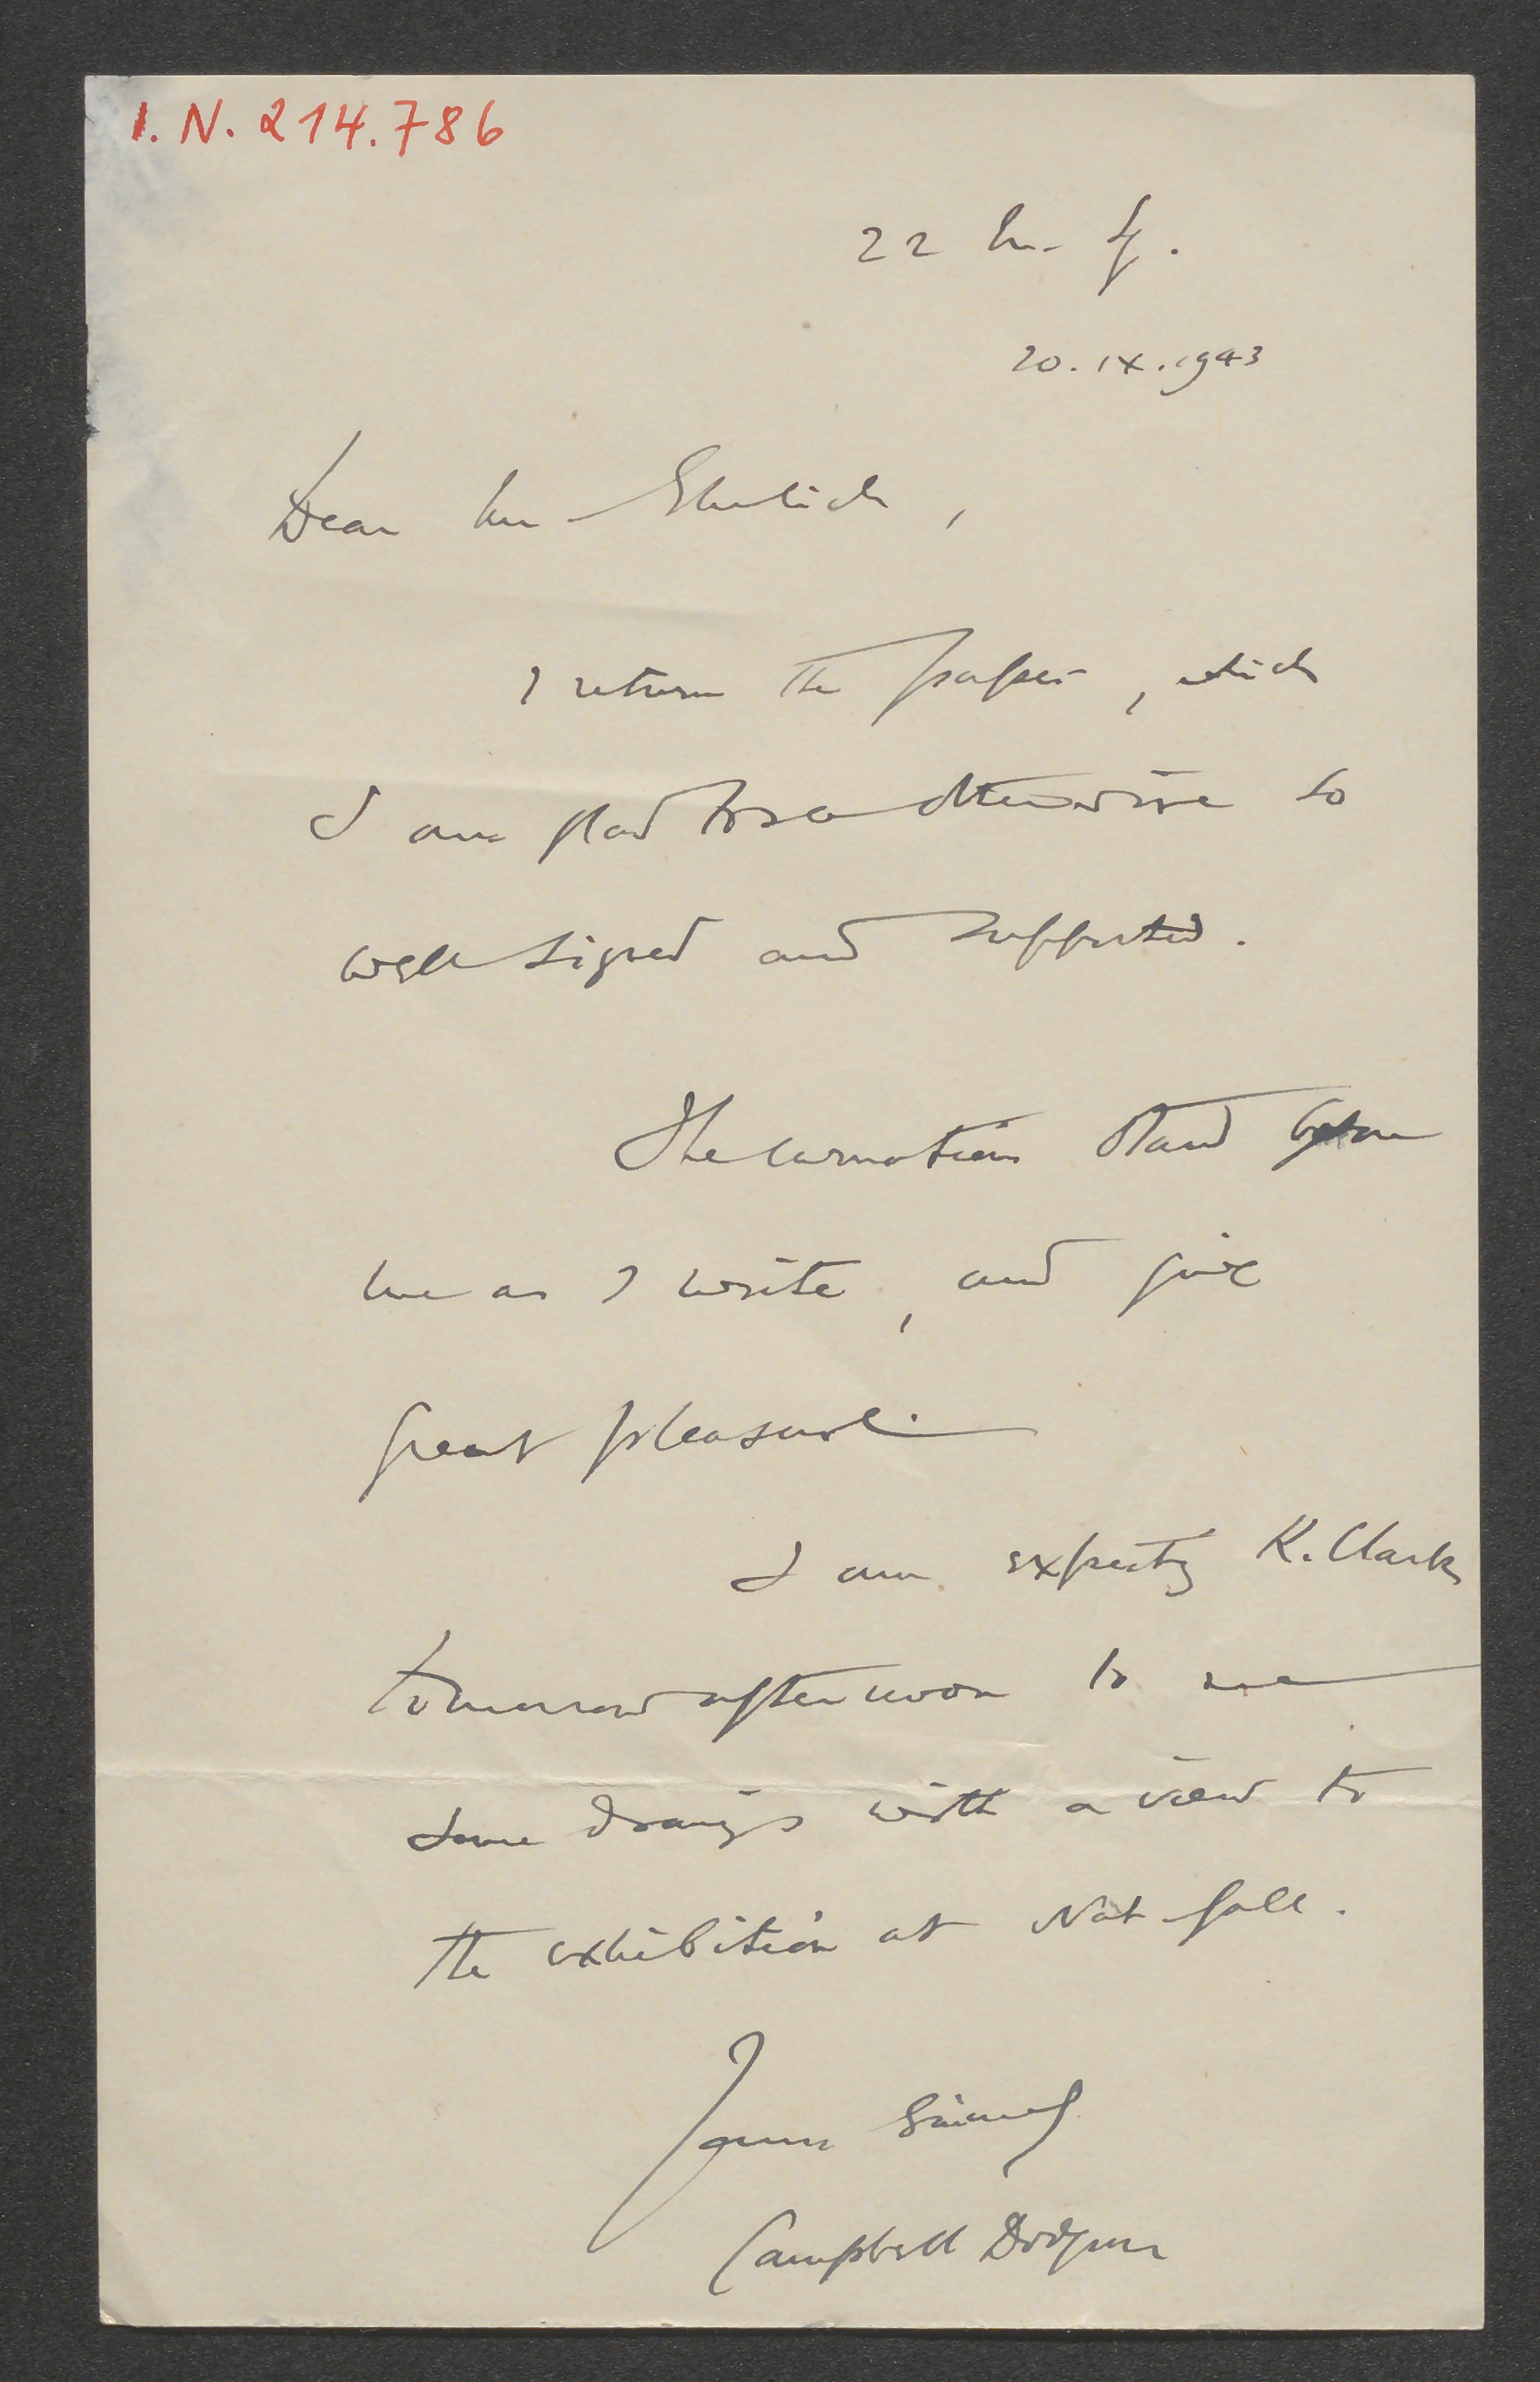 I. N. 214.786
22 M. Sq.
20. IX. 1943
Dear Mr Ehrlich,
I return the paper, which
I am glad to see otherwise so
well signed and supported.
The carnations stand before
me as I write, and give
great pleasure.
I am expecting K. Clark
tomorrow afternoon to see
some drawings with a view to
the exhibition at Nat Gall.
Yours sincerely
Campbell Dodgson